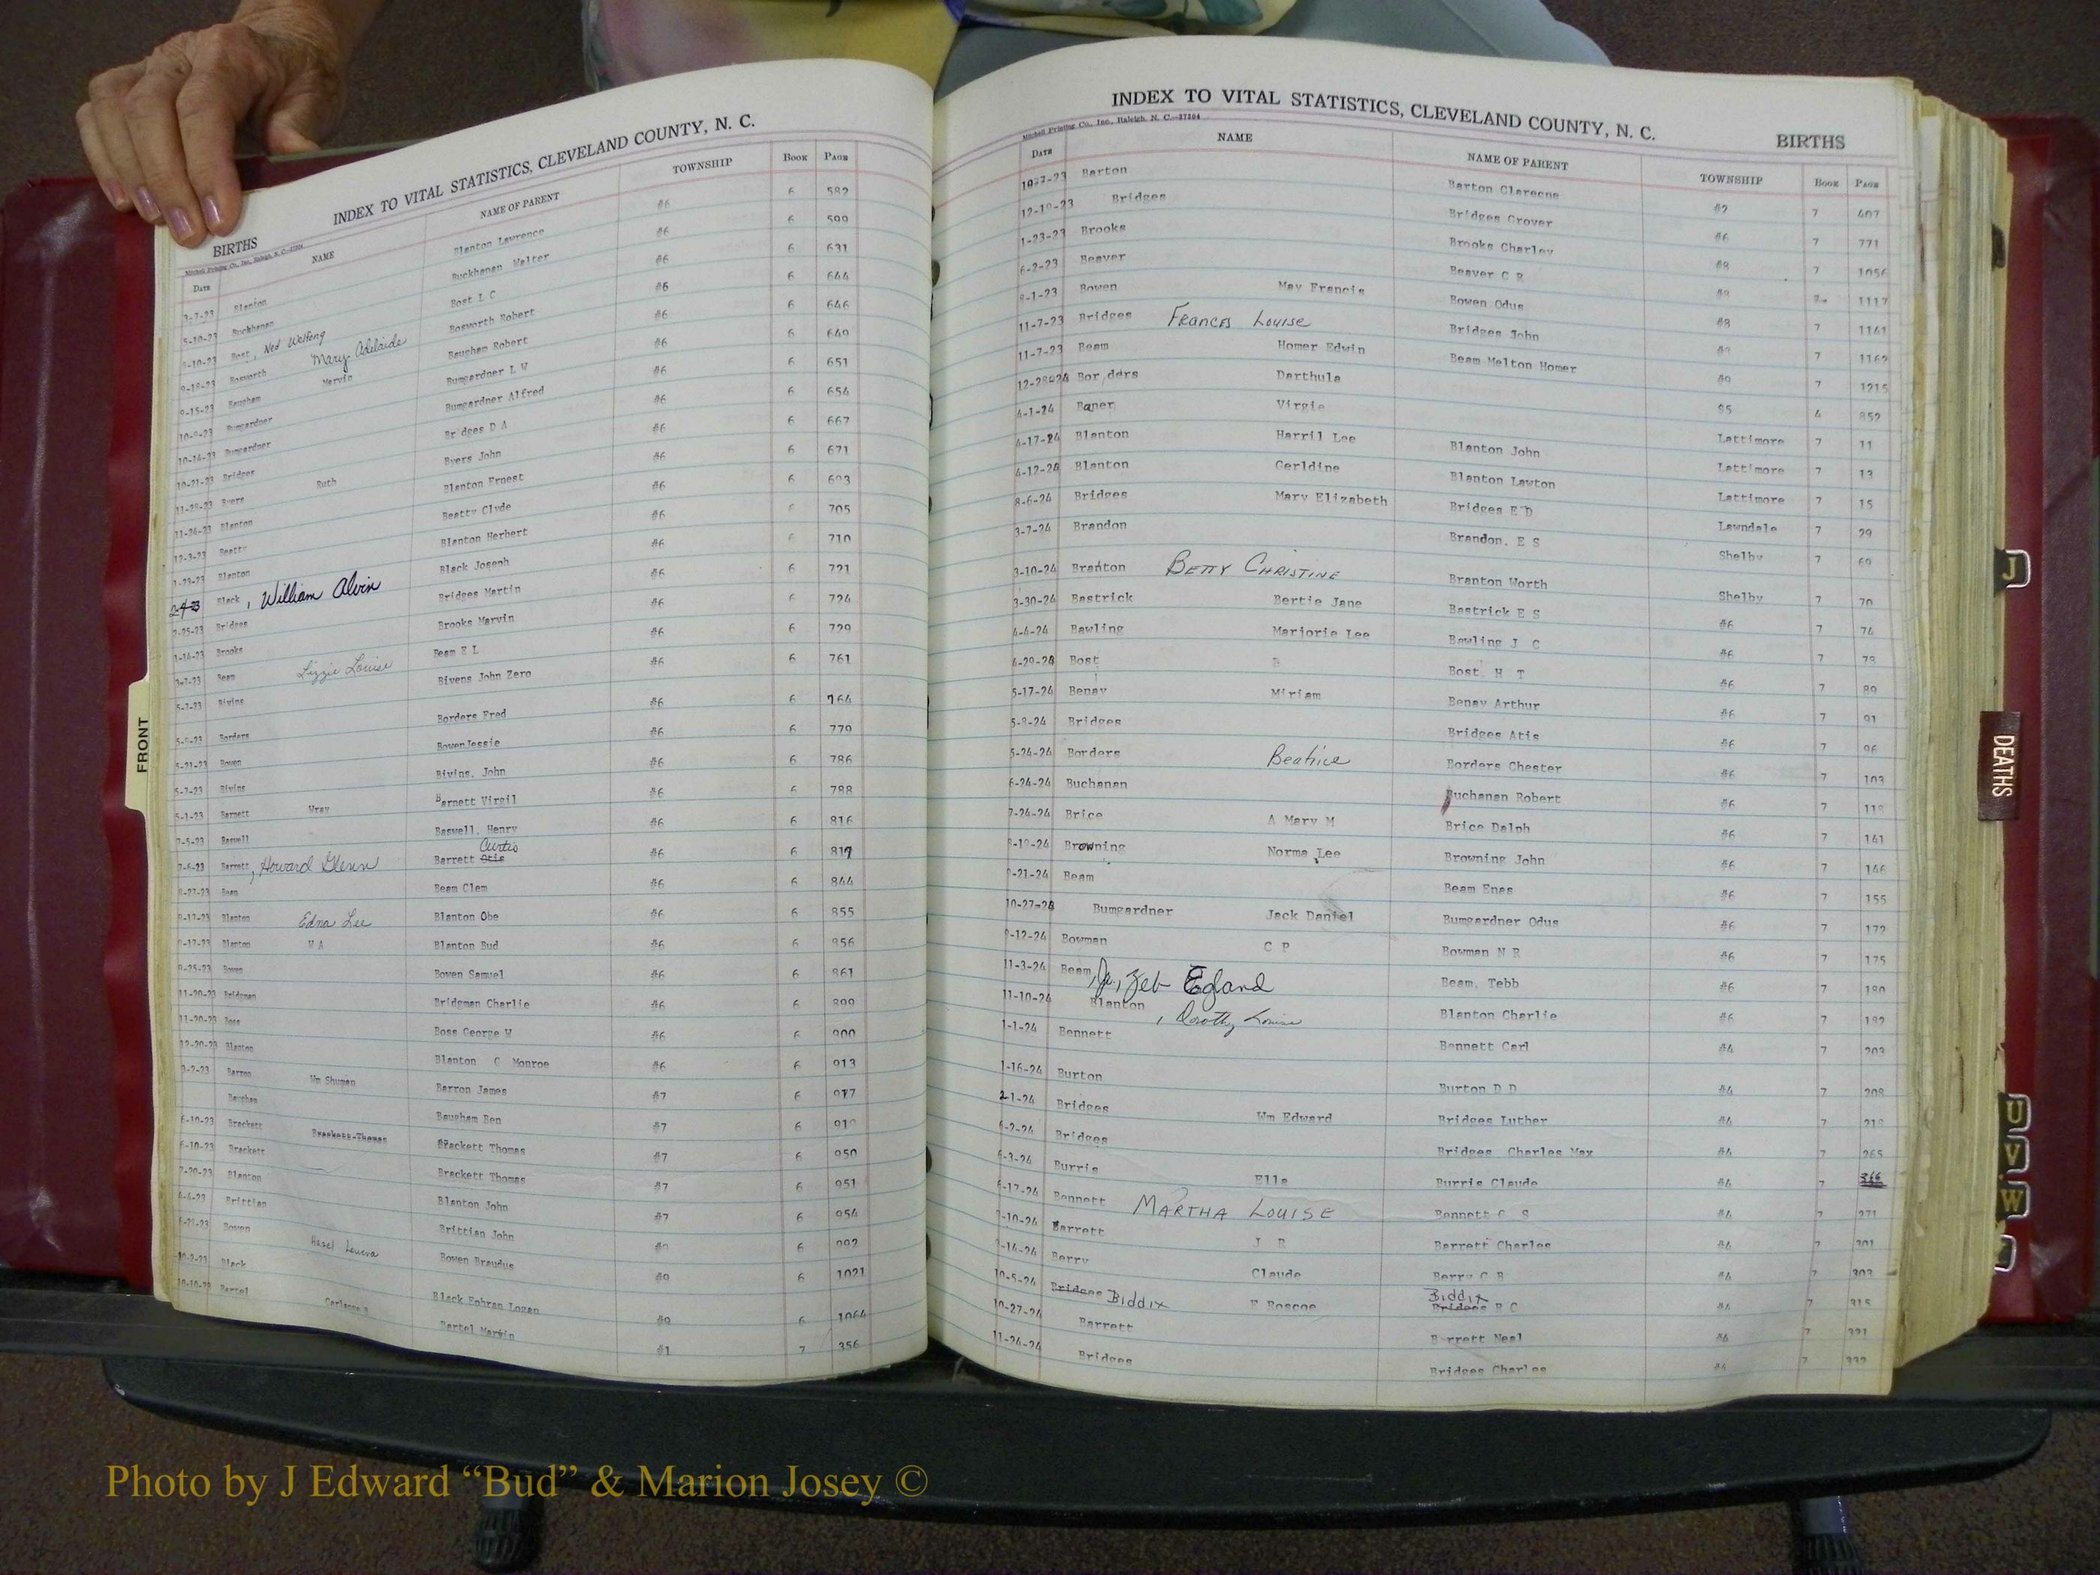 INDEX TO VITAL STATISTICS, CLEVELAND COUNTY, N. C.
BIRTHS
Mitchell Printing Co., Inc., Raleigh, N. C.
DATE NAME NAME OF PARENT TOWNSHIP BOOK PAGE
3-7-23 Blanton Blanton Lawrence #6 6 582
5-10-23 Buckhanan Buckhanan Walter #6 6 599
Bost, Ned Bost L C #6 6 631
9-18-23 Bosworth Mary Adelaide Bosworth Robert #6 6 644
9-15-23 Baugham Marvin Baugham Robert #6 6 646
10-9-23 Bumgardner Bumgardner L W #6 6 649
10-14-23 Bumgardner Bumgardner Alfred #6 6 651
10-21-23 Bridges Br dges D A #6 6 654
11-28-23 Byers Ruth Byers John #6 6 667
11-24-23 Blanton Blanton Ernest #6 6 671
12-3-23 Beatty Beatty Clyde #6 6 693
1-23-23 Blanton Blanton Herbert #6 6 705
2-4-23 Black, William Alvin Black Joseph #6 6 710
2-25-23 Bridges Bridges Martin #6 6 721
1-14-23 Brooks Brooks Marvin #6 6 724
Beam Lizzie Louise Beam E L #6 6 729
5-7-23 Bivins Bivens John Zero #6 6 761
Borders Borders Fred #6 6 764
5-21-23 Bowen BowenJessie #6 6 779
5-7-23 Bivins Bivins, John #6 6 786
5-1-23 Barnett Wray Barnett Virgil #6 6 788
7-5-23 Baswell Baswell, Henry #6 6 816
7-6-23 Barrett, Howard Glenn Barrett Otis Curtis #6 6 817
8-27-23 Beam Beam Clem #6 6 844
Blanton Edna Lee Blanton Obe #6 6 855
Blanton W A Blanton Bud #6 6 856
9-25-23 Bowen Bowen Samuel #6 6 861
11-20-23 Bridgman Bridgman Charlie #6 6 899
11-20-23 Boss Boss George W #6 6 900
12-20-23 Blanton Blanton G Monroe #6 6 913
3-2-23 Barron Wm Shuman Barron James #7 6 917
Baugham Baugham Ben #7 6 919
6-10-23 Brackett Brackett Thomas Brackett Thomas #7 6 950
6-10-23 Brackett Brackett Thomas #7 6 951
7-20-23 Blanton Blanton John #7 6 954
4-4-23 Brittian Brittian John 6 992
Bowen Hazel Bowen Braudus #9 6 1021
10-2-23 Black Black Ephran Logan #9 6 1064
Bartel Bartel Marvin #1 7 356
FRONT
INDEX TO VITAL STATISTICS, CLEVELAND COUNTY, N. C.
BIRTHS
Mitchell Printing Co., Inc., Raleigh, N. C.—37204
DATE NAME NAME OF PARENT TOWNSHIP BOOK PAGE
Barton Barton Clarecne #2 7 407
12-19-23 Bridges Bridges Grover #6 7 771
1-23-23 Brooks Brooks Charley #8 7 1056
6-2-23 Beaver Beaver C R 1117
8-1-23 Bowen May Francis Bowen Odus #8 7 1141
11-7-23 Bridges Frances Louise Bridges John 7 1162
11-7-23 Beam Homer Edwin Beam Melton Homer #9 7 1215
Bor ders Darthula $5 4 852
4-1-24 Baner Virgie Lattimore 7 11
4-17-24 Blanton Harril Lee Blanton John Lattimore 7 13
4-12-24 Blanton Gerldine Blanton Lawton Lattimore 7 15
8-6-24 Bridges Mary Elizabeth Bridges E D Lawndale 7 29
3-7-24 Brandon Brandon, E S Shelby 7 69
3-10-24 Branton Betty Christine Branton Worth Shelby 7 70
3-30-24 Bastrick Bertie Jane Bastrick E S #6 7 74
4-4-24 Bawling Marjorie Lee Bawling J C #6 7 79
4-29-24 Bost Bost H T #6 7 89
5-17-24 Benay Miriam Benay Arthur #6 7 91
5-8-24 Bridges Bridges Atis #6 7 96
5-24-24 Borders Beatrice Borders Chester #6 7 103
6-24-24 Buchanan Buchanan Robert #6 7 118
7-24-24 Brice A Mary M Brice Dalph #6 7 141
8-19-24 Browning Norma Lee Browning John #6 7 146
9-21-24 Beam Beam Enas #6 7 155
10-27-24 Bumgardner Jack Daniel Bumgardner Odus #6 7 172
9-12-24 Bowman C P Bowman N R #6 7 175
11-3-24 Beam, Jr., Zeb Egland Beam, Tebb #6 7 180
11-10-24 Blanton, Dorothy Louise Blanton Charlie #6 7 182
1-1-24 Bennett Bennett Carl #4 7 203
1-16-24 Burton Burton D D #4 7 208
2-1-24 Bridges Wm Edward Bridges Luther #4 7 218
6-2-24 Bridges Bridges Charles Max #4 7 265
6-3-24 Burris Ella Burris Claude #4 7 266
6-17-24 Bennett Martha Louise Bennett G S #4 7 271
7-10-24 Barrett J R Barrett Charles #4 7 301
Berry Claude Berry C B #4 7 303
10-5-24 Bridges Biddix F Roscoe Biddix Bridges R C #4 7 315
10-27-24 Barrett B rrett Neal #4 7 321
11-24-24 Bridges Bridges Charles #4 7 332
J
DEATHS
U
V
W
Photo by J Edward “Bud” & Marion Josey ©